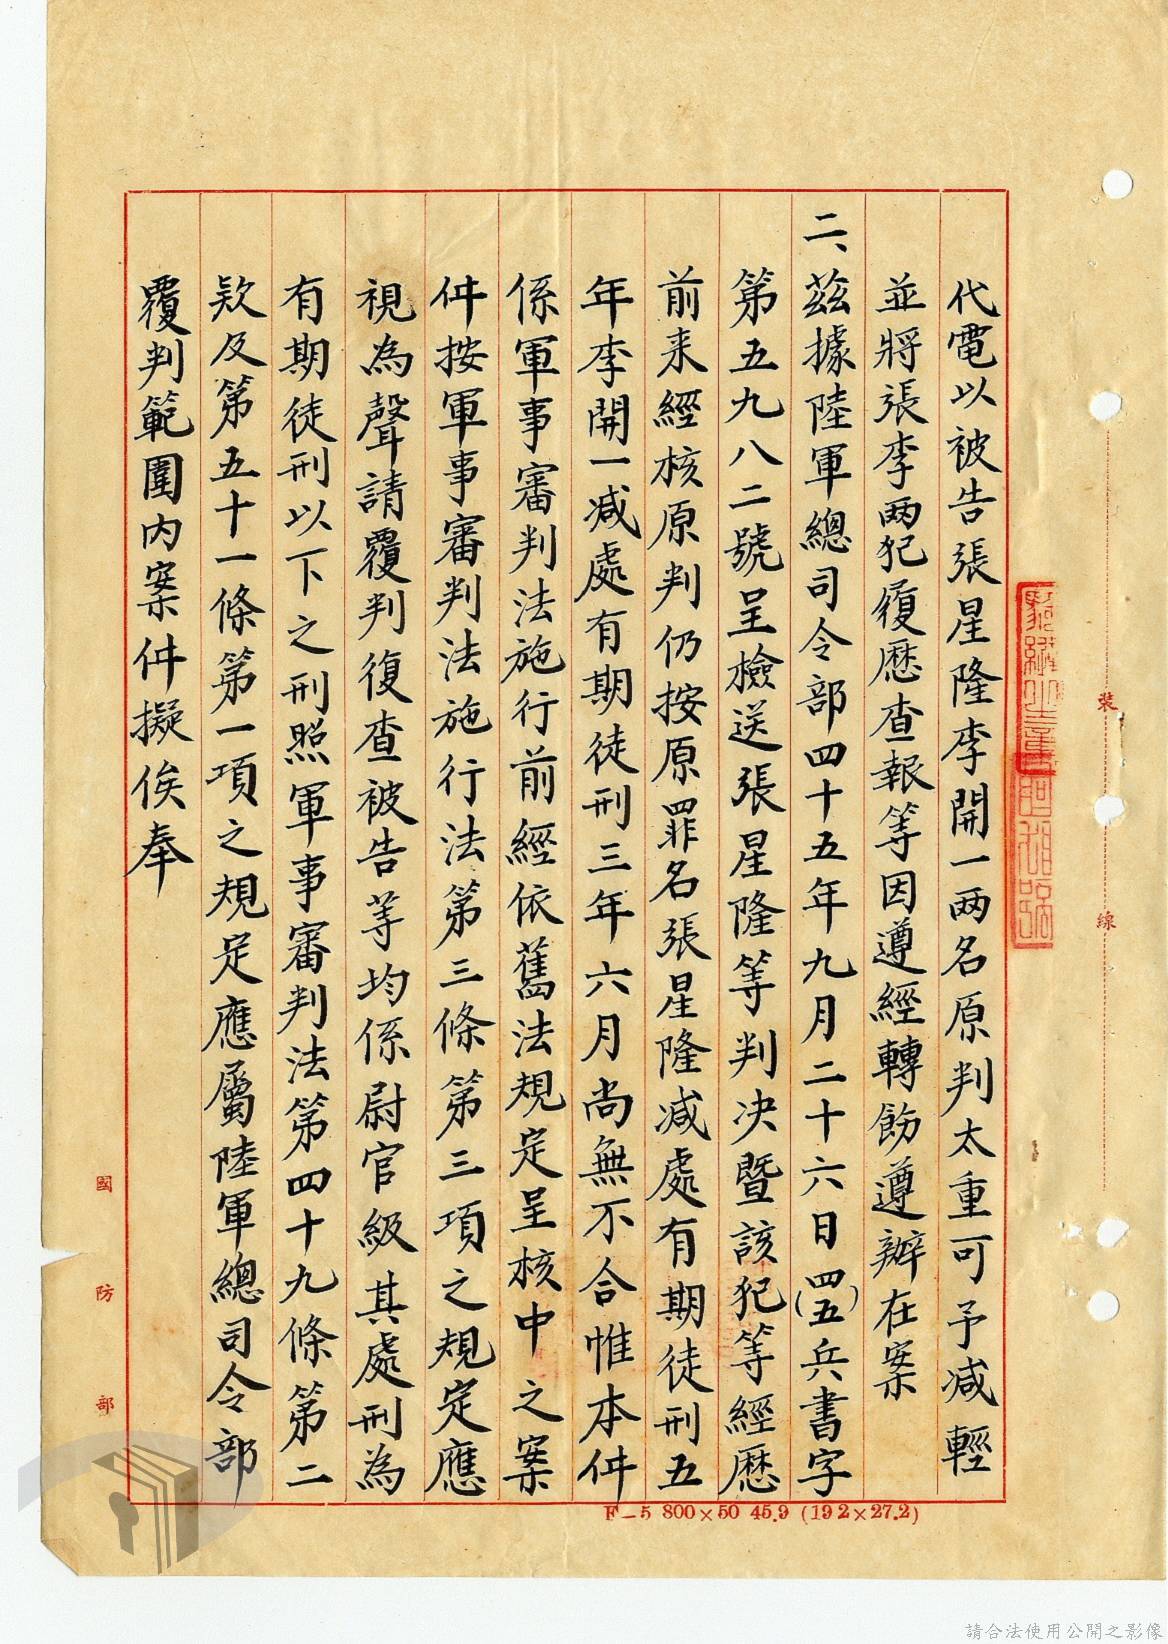 代電以被告張星隆李開一兩名原判太重可予減輕
並將張李兩犯復歷查報等因遵經轉飭遵辦在案
二、茲據陸軍總司令部四十五年九月二十六日(四五)兵書字
第五九八二號呈檢送張星隆等判決暨該犯等經歷
前来經核原判仍按原罪名張星隆減處有期徒刑五
年李開一減處有期徒刑三年六月尚無不合惟本件
係軍事審判法施行前經依舊法規定呈核中之案
件按軍事審判法施行法第三條第三項之規定應
視為聲請覆判復查被告等均係尉官級其處刑為
有期徒刑以下之刑照軍事審判法第四十九條第二
款及第五十一條第一項之規定應屬陸軍總司令部
覆判範圍內案件擬俟奉
裝
線
國防部
F-5 800×50 45.9 (19.2×27.2)
請合法使用公開之影像